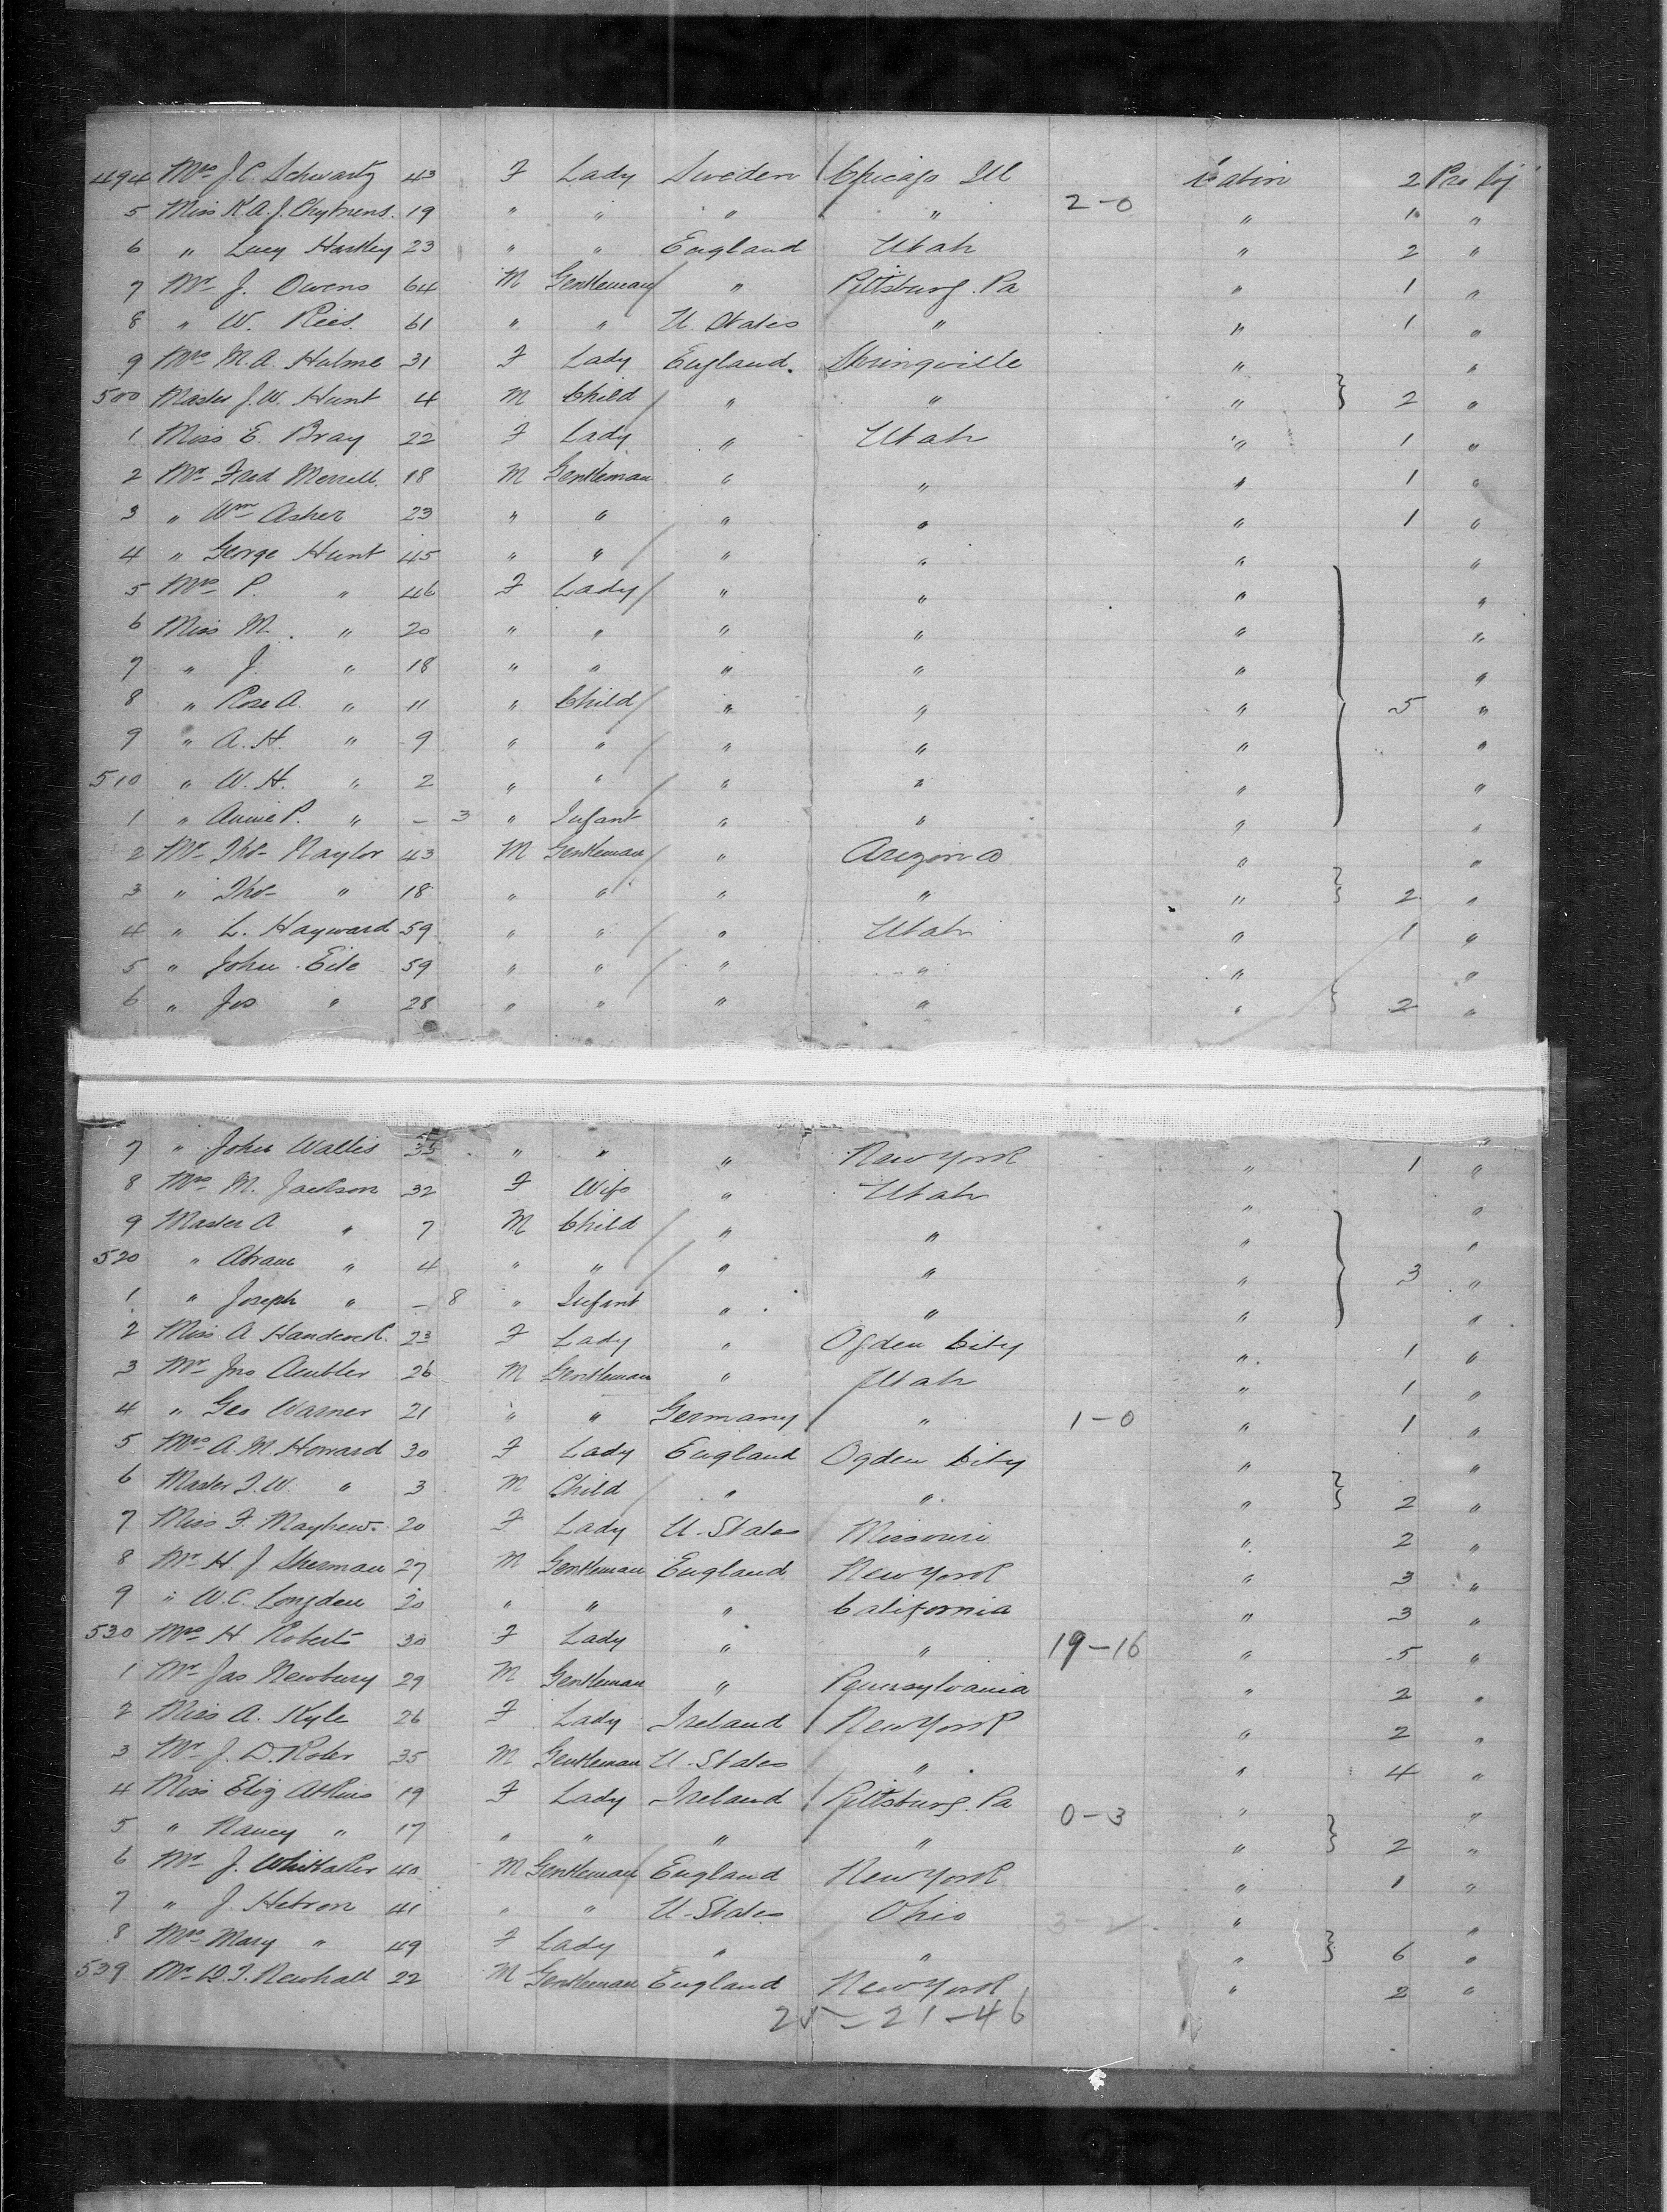 494 Mrs J.C. Schwartz 43 F Lady Sweden Chicago Ill Cabin 2 Pro Soj
5 Miss K.A.J. 19 " " " " 2-0 " 1 "
6 " Lucy Harkey 23 " " England Utah " 2 "
7 Mr J. Owens 64 M Gentleman " Pittsburg. Pa " 1 "
8 " W. Rees. 61 " " U. States " " 1 "
9 Mrs M.A. Hulme 31 F Lady England. " "
500 Master J.W. Hunt 4 M Child " " " 2 "
1 Miss E. Bray 22 F Lady " Utah " 1 "
2 Mr Fred Merrell. 18 M Gentleman " " " 1 "
3 " Wm Asher 23 " " " " " 1 "
4 " George Hunt 45 " " " " " "
5 Mrs P. " 46 F Lady " " " "
6 Miss M. " 20 " " " " " "
7 " J. " 18 " " " " " "
8 " Rose A. " 11 " Child " " " 5 "
9 " A.H. " 9 " " " " " "
510 " W.H. " 2 " " " " " "
1 " Annie P. " - 3 " Infant " " " "
2 Mr Thos Naylor 43 M Gentleman " Arizona " "
3 " Thos " 18 " " " " " 2 "
4 " L. Hayward 59 " " " Utah " 1 "
5 " John Eile 59 " " " " " "
6 " Jos " 28 " " " " " 2 "
7 " John Wallis 35 " " " New York " 1 "
8 Mrs M. Jackson 32 F Wife " Utah " "
9 Master A " 7 M Child " " " "
520 " Abram " 4 " " " " " 3 "
1 " Joseph " - 8 " Infant " " " "
2 Miss A Handcock. 23 F Lady " Ogden City " 1 "
3 Mr Jno 26 M Gentleman " Utah " 1 "
4 " Geo Warner 21 " " Germany " 1-0 " 1 "
5 Mrs A.M. Howard 30 F Lady England Ogden City " "
6 Master J.W. " 3 M Child " " " 2 "
7 Miss F. Mayhew. 20 F Lady U. States Missouri " 2 "
8 Mr H.J. Sherman 27 M Gentleman England New York " 3 "
9 " W.C. Longden 20 " " " California " 3 "
530 Mrs H Roberts 30 F Lady " " 19-16 " 5 "
1 Mr Jas Newbury 29 M Gentleman " Pennsylvania " 2 "
2 Miss A. Kyle 26 F Lady Ireland New York " 2 "
3 Mr J.D. Roler 35 M Gentleman U. States " " 4 "
4 Miss Eliz Atkins 19 F Lady Ireland Pittsburg. Pa 0-3 " "
5 " Nancy " 17 " " " " " 2 "
6 Mr J. Whittaker 40 M Gentleman England New York " 1 "
7 " J. Hetron 41 " " U. States Ohio " "
8 Mrs Mary " 49 F Lady " " " 6 "
539 Mr W.J. Newhall 22 M Gentleman England New York " 2 "
25-21-46